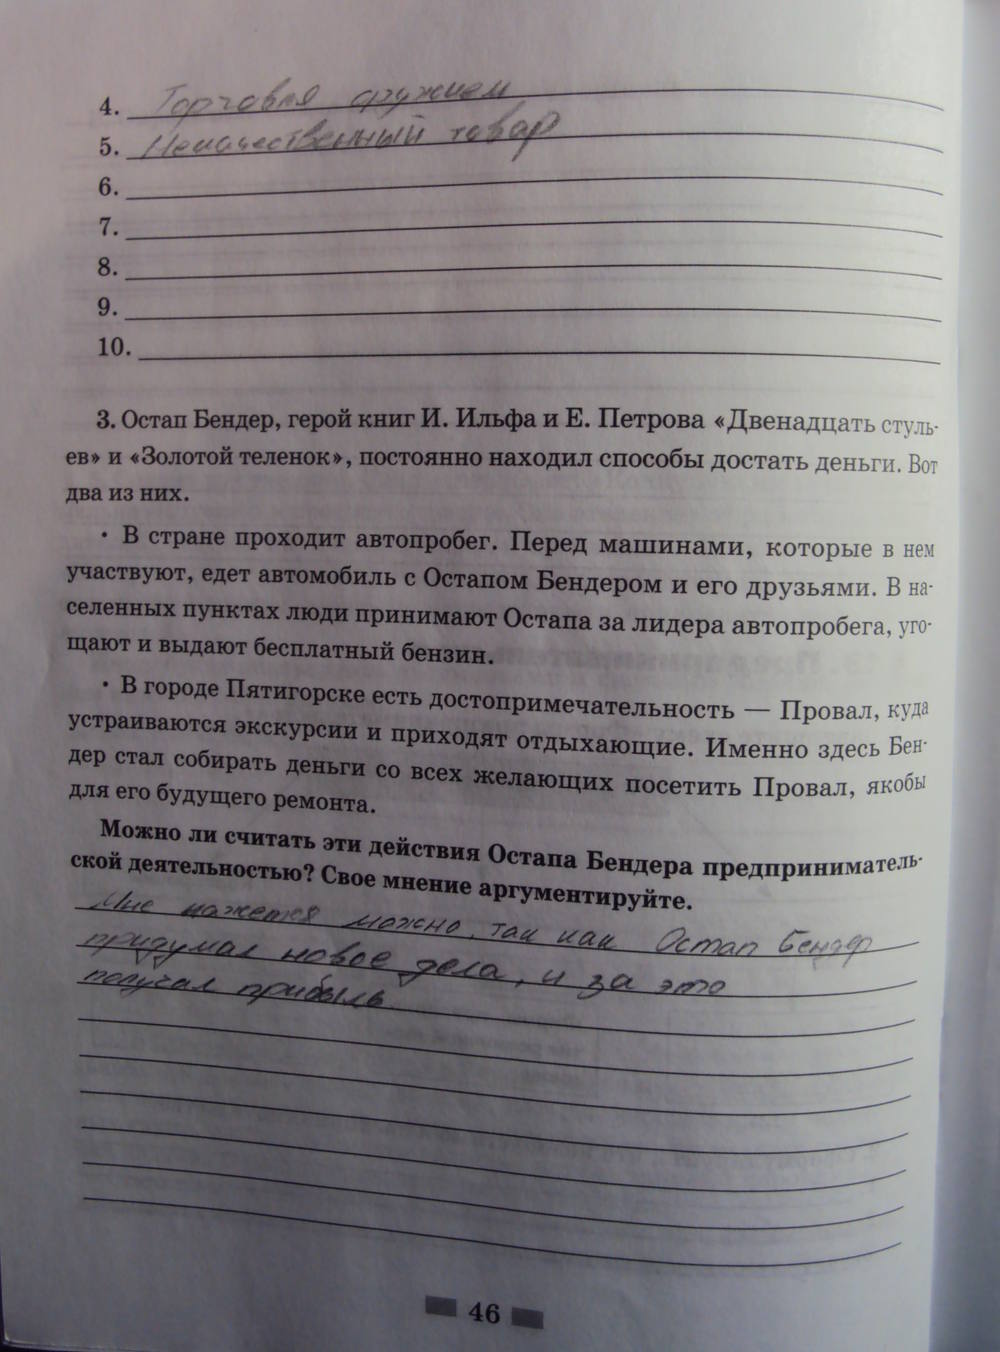 4. Торговля оружием
5. Некачественный товар
6.
7.
8.
9.
10.
3. Остап Бендер, герой книг И. Ильфа и Е. Петрова «Двенадцать стуль-
ев» и «Золотой теленок», постоянно находил способы достать деньги. Вот
два из них.
• В стране проходит автопробег. Перед машинами, которые в нем
участвуют, едет автомобиль с Остапом Бендером и его друзьями. В на-
селенных пунктах люди принимают Остапа за лидера автопробега, уго-
щают и выдают бесплатный бензин.
• В городе Пятигорске есть достопримечательность — Провал, куда
устраиваются экскурсии и приходят отдыхающие. Именно здесь Бен-
дер стал собирать деньги со всех желающих посетить Провал, якобы
для его будущего ремонта.
Можно ли считать эти действия Остапа Бендера предприниматель-
ской деятельностью? Свое мнение аргументируйте.
Мне кажется можно, так как Остап Бендер
придумал новое дела, и за это
получал прибыль
46